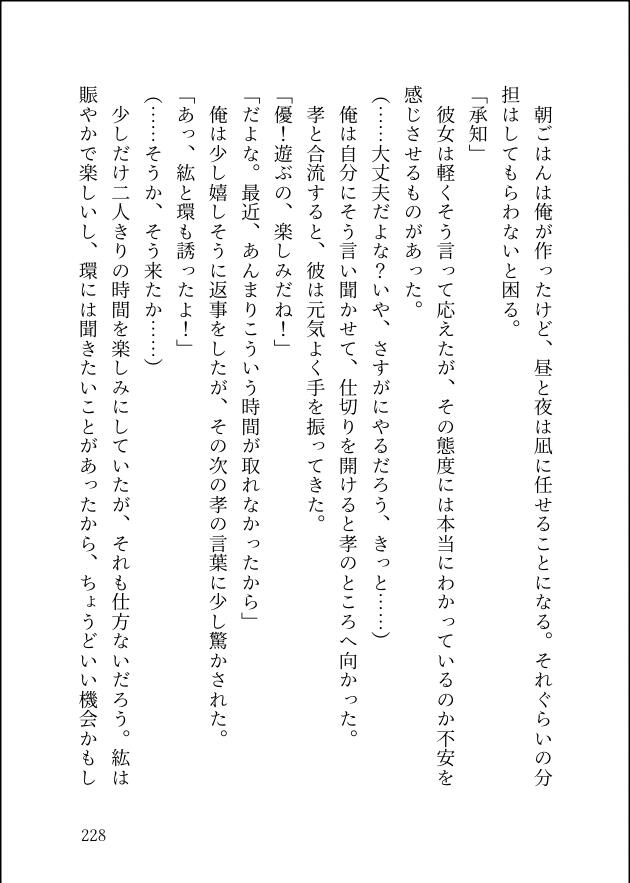 朝ごはんは俺が作ったけど、昼と夜は凪に任せることになる。それぐらいの分
担はしてもらわないと困る。
「承知」
　彼女は軽くそう言って応えたが、その態度には本当にわかっているのか不安を
感じさせるものがあった。
(……大丈夫だよな？いや、さすがにやるだろう、きっと……)
　俺は自分にそう言い聞かせて、仕切りを開けると孝のところへ向かった。
　孝と合流すると、彼は元気よく手を振ってきた。
「優！遊ぶの、楽しみだね！」
「だよな。最近、あんまりこういう時間が取れなかったから」
　俺は少し嬉しそうに返事をしたが、その次の孝の言葉に少し驚かされた。
「あっ、紘と環も誘ったよ！」
(……そうか、そう来たか……)
　少しだけ二人きりの時間を楽しみにしていたが、それも仕方ないだろう。紘は
賑やかで楽しいし、環には聞きたいことがあったから、ちょうどいい機会かもし
228